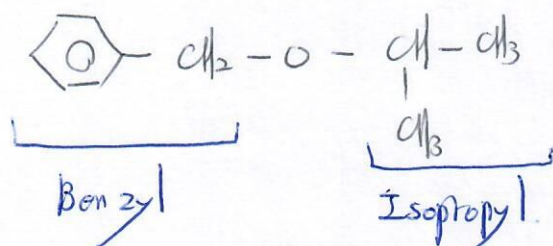 CH₂ - O - CH - CH₃
CH₃
Benzyl
Isopropyl